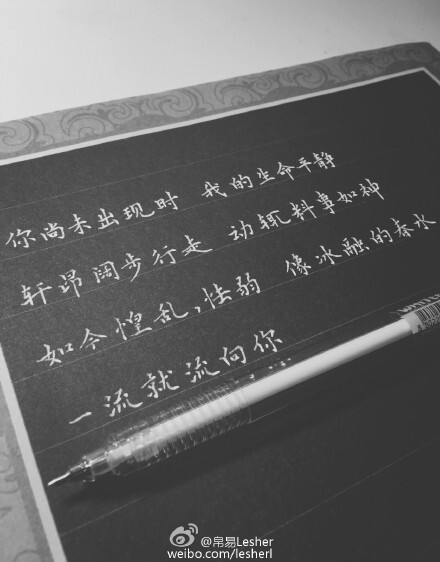 你尚未出现时 我的生命平静
轩昂阔步行走 动辄料事如神
如今惶乱,怯弱 像冰融的春水
一流就流向你
@帛易Lesher
weibo.com/lesherl